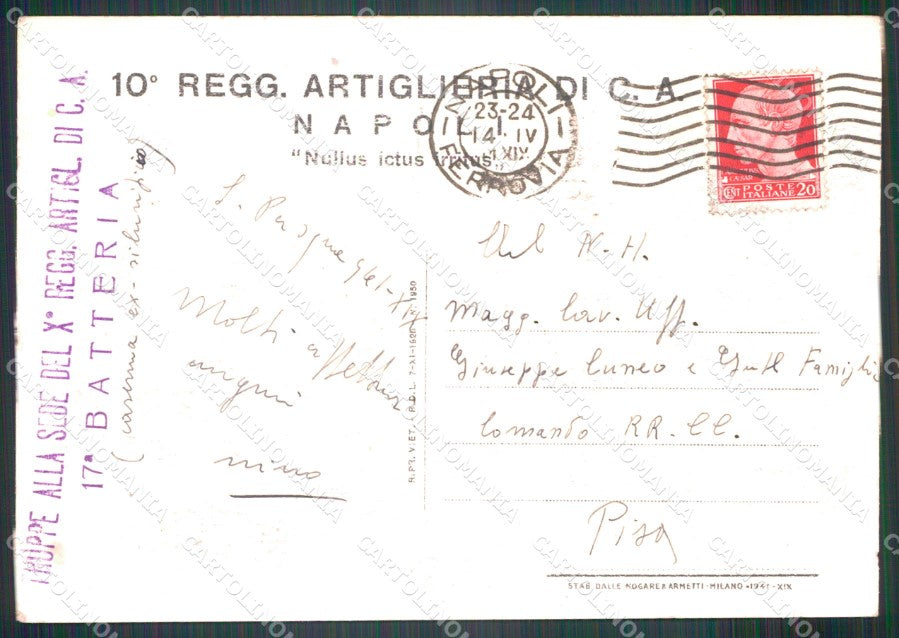 10° REGG. ARTIGLIERIA DI C. A.
NAPOLI
"Nullius ictus irritus"
TRUPPE ALLA SEDE DEL X° REGG. ARTIGL. DI C. A.
17ª BATTERIA
(caserma ex-silurificio)
NAPOLI
23-24
14. IV
XIX
FERROVIA
CAESAR
POSTE
ITALIANE 20
S. Pasqua 941-XIX
Molti affettuosi
auguri
nino
R. PR. V. ET. P. D. L. 7-XI-1926 N. 1950
Al N. H.
Magg. Cav. Uff.
Giuseppe Cuneo e Gentl Famiglia
Comando RR. CC.
Pisa
STAB. DALLE NOGARE & ARMETTI - MILANO - 1941 - XIX
CARTOLINOMANIA